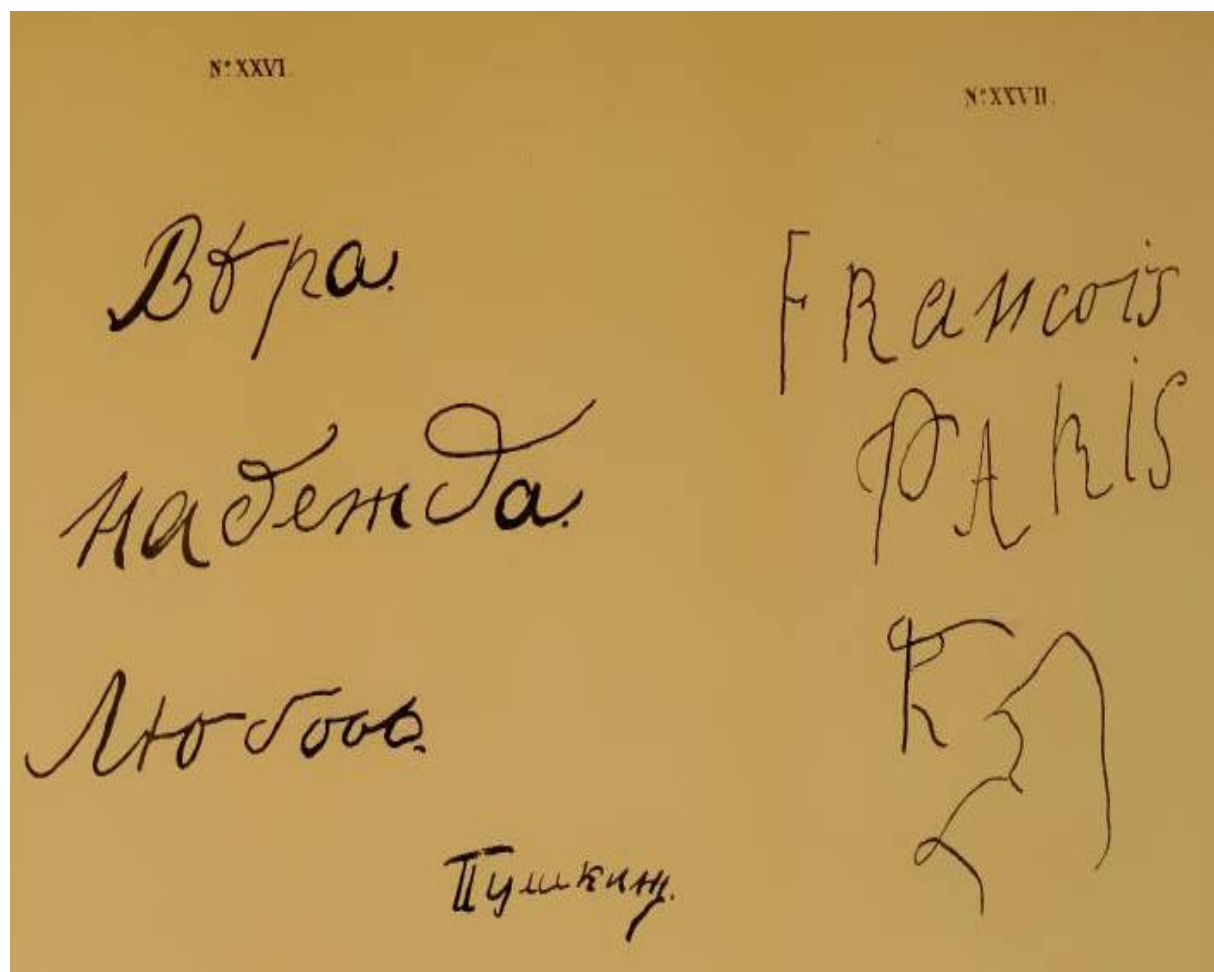 Nº XXVI.
Вѣра.
надежда.
Любовь.
Пушкинъ.
Nº XXVII.
FRancois
PARIS